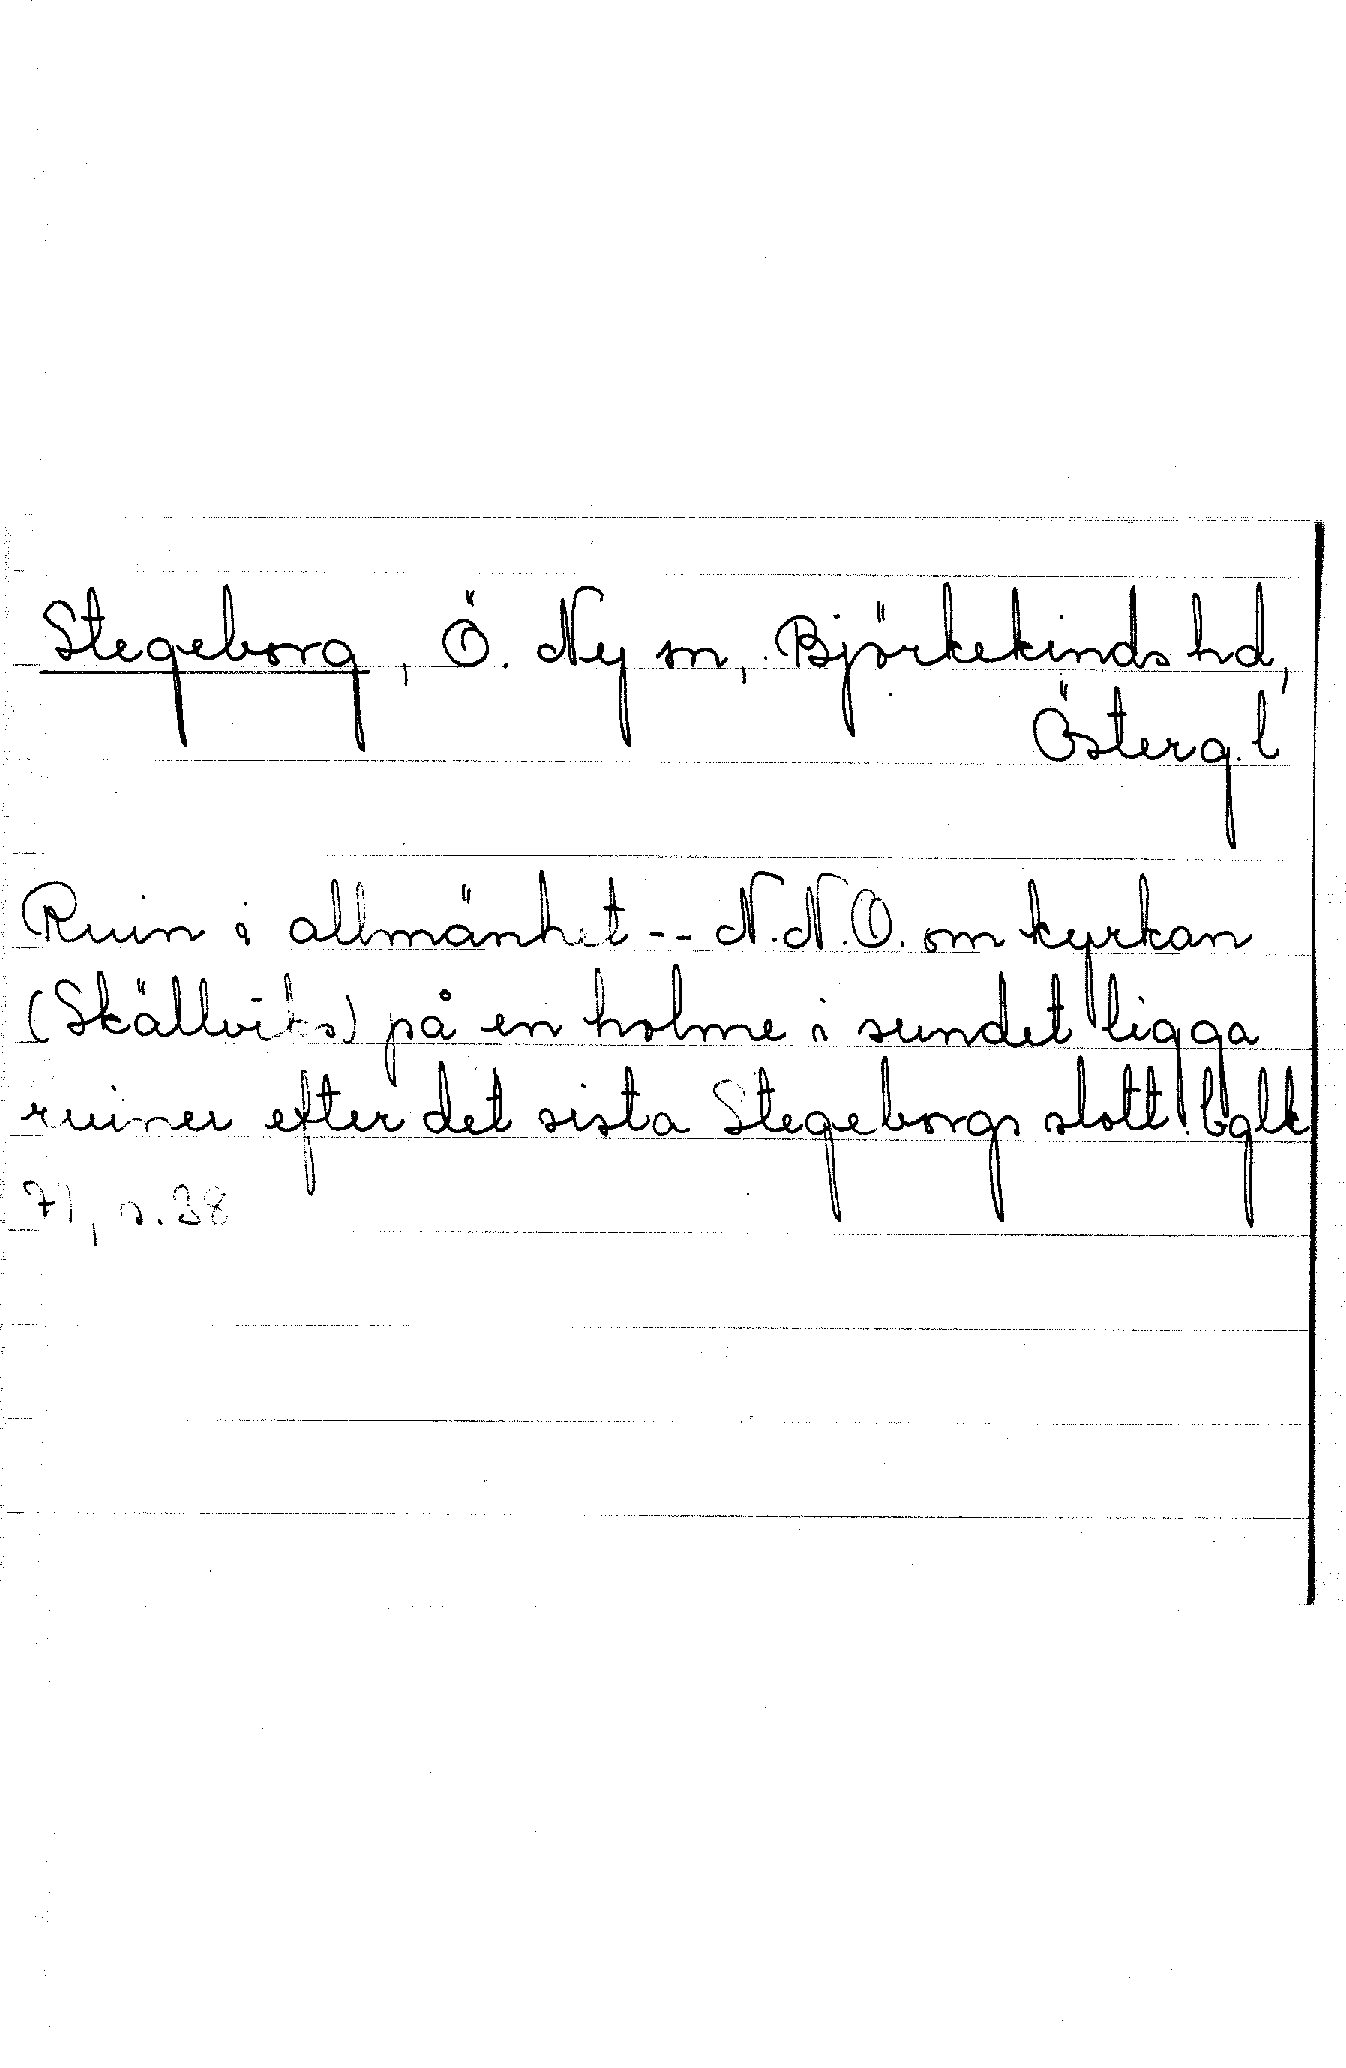 Stegeborg, Ö. Ny sn, Björkekinds hd,
Österg. l
Ruin i allmänhet -- N.N.O. om kyrkan
(Skällviks) på en holme i sundet ligga
ruiner efter det sista Stegeborgs slott. Bglk
71, s. 38